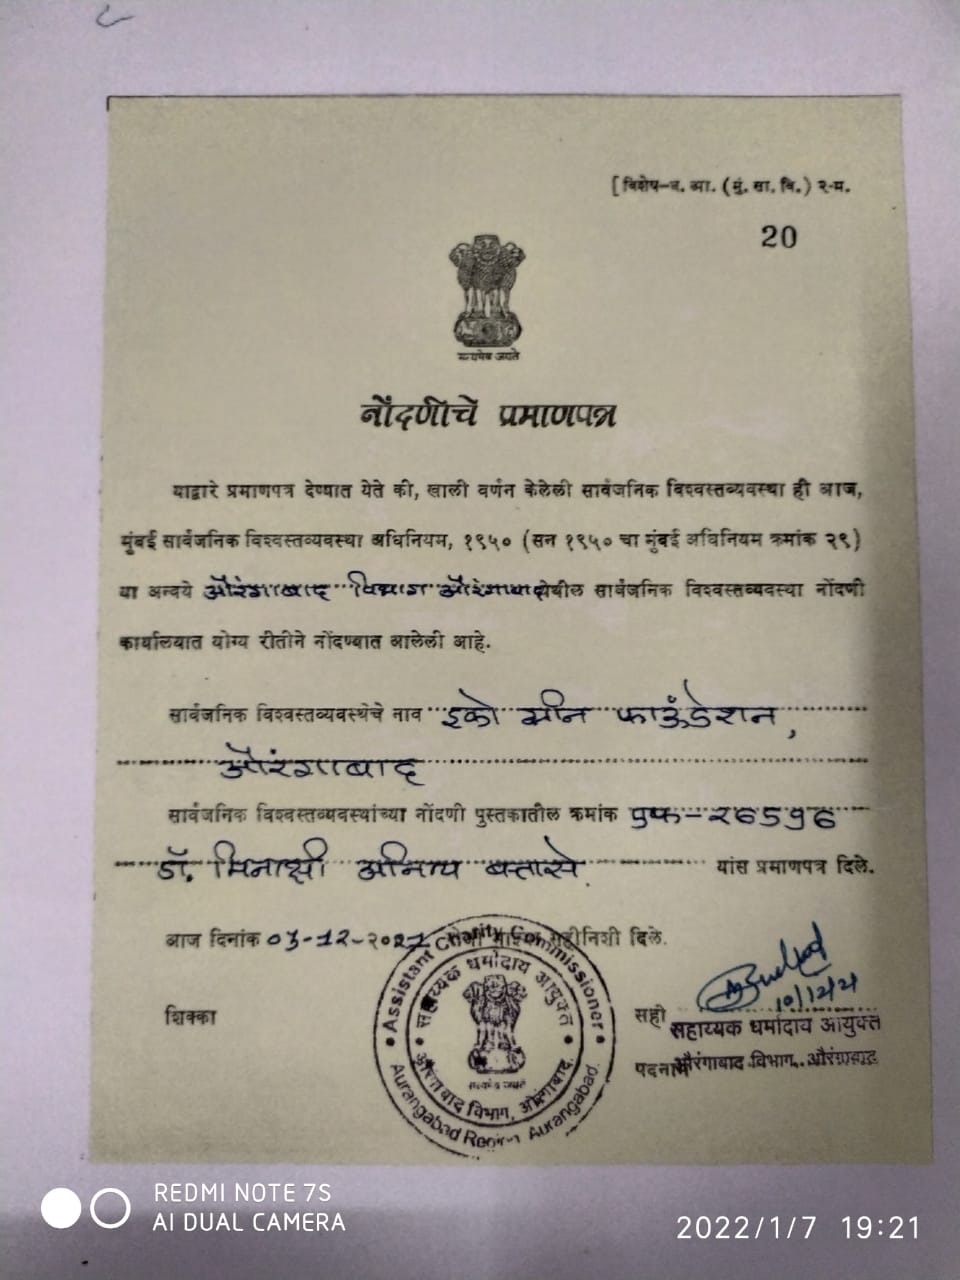 [ विशेष-व. आ. (मुं. सा. वि.) २-म.
20
सत्यमेव जयते
नोंदणीचे प्रमाणपत्र
याद्वारे प्रमाणपत्र देण्यात येते की, खाली वर्णन केलेली सार्वजनिक विश्वस्तव्यवस्था ही आज,
मुंबई सार्वजनिक विश्वस्तव्यवस्था अधिनियम, १९५० (सन १९५० चा मुंबई अधिनियम क्रमांक २९)
या अन्वये औरंगाबाद विभाग औरंगाबाद येथील सार्वजनिक विश्वस्तव्यवस्था नोंदणी
कार्यालयात योग्य रीतीने नोंदण्यात आलेली आहे.
सार्वजनिक विश्वस्तव्यवस्थेचे नाव इको ग्रीन फाऊंडेशन,
औरंगाबाद
सार्वजनिक विश्वस्तव्यवस्थांच्या नोंदणी पुस्तकातील क्रमांक एफ-२६५९६
डॉ. मिनाक्षी बत्तासे. यांस प्रमाणपत्र दिले.
आज दिनांक दिले.
Assistant Charity Commissioner
सहाय्यक धर्मादाय आयुक्त
सत्यमेव जयते
औरंगाबाद विभाग, औरंगाबाद.
Aurangabad Region Aurangabad.
शिक्का
10/12/21
सही
सहाय्यक धर्मादाय आयुक्त
पदनाम औरंगाबाद विभाग, औरंगाबाद
REDMI NOTE 7S
AI DUAL CAMERA
2022/1/7 19:21